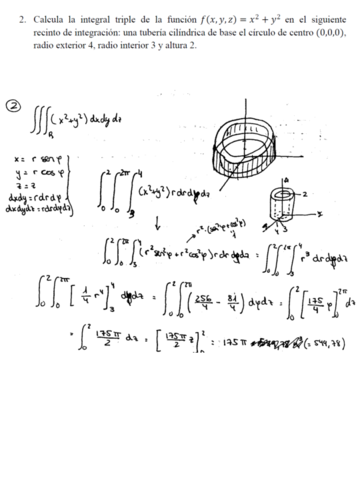 2. Calcula la integral triple de la función f(x, y, z) = x² + y² en el siguiente
recinto de integración: una tubería cilíndrica de base el círculo de centro (0,0,0),
radio exterior 4, radio interior 3 y altura 2.
②
∭_R (x²+y²) dxdydz
x = r sen φ
y = r cos φ
z = z
dxdy = r dr dφ
dxdydz = r dr dφ dz
∫₀² ∫₀^2π ∫₃⁴ (x²+y²) r dr dφ dz
r²·(sen²φ + cos²φ)
1
∫₀² ∫₀^2π ∫₃⁴ (r² sen²φ + r² cos²φ) r dr dφ dz = ∫₀² ∫₀^2π ∫₃⁴ r³ dr dφ dz
∫₀² ∫₀^2π [1/4 r⁴]₃⁴ dφ dz = ∫₀² ∫₀^2π (256/4 - 81/4) dφ dz = ∫₀² [175/4 φ]₀^2π dz
= ∫₀² 175π/2 dz = [175π/2 z]₀² = 175 π (= 549,78)
2
3
4
x